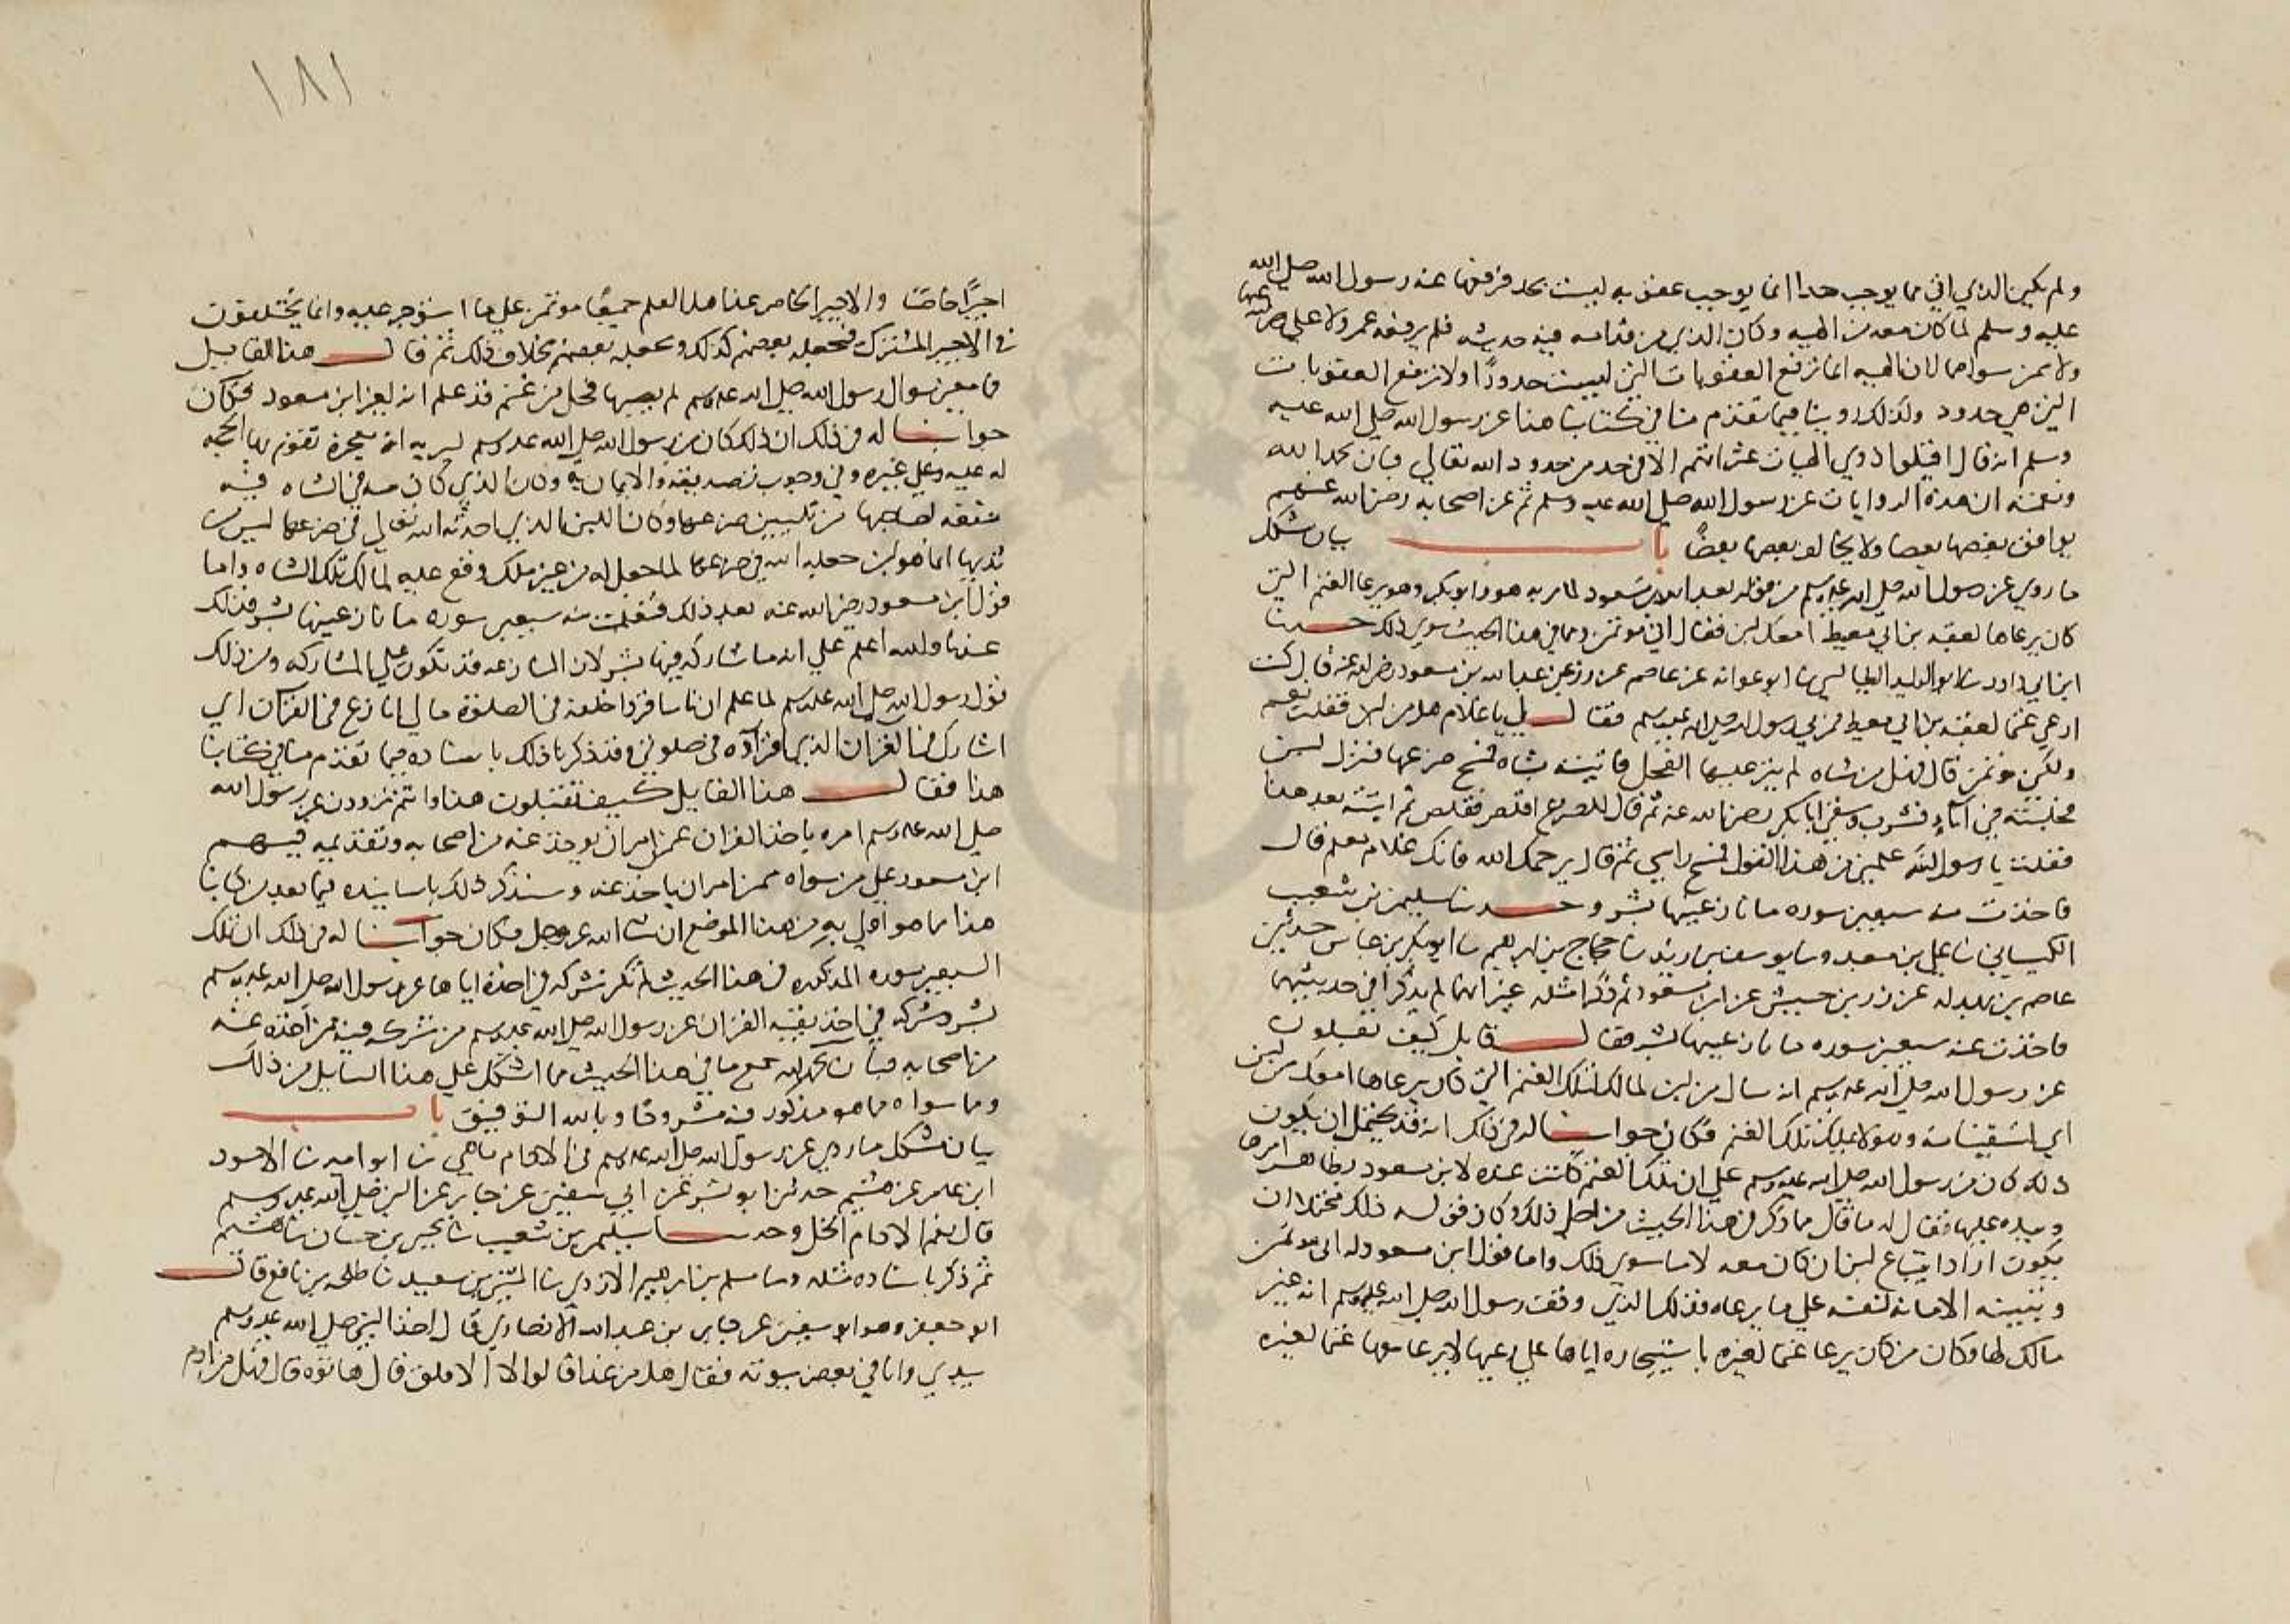 ولم يكن الذي اتي مما يوجب حدا انما يوجب عقوبه ليست بحد فرفعها عنه رسول الله صلى الله
عليه وسلم لما كان معه من الهييه وكان الذي من قدامه فيه حديثه فلم يرفعه عمر ولا علي رضي الله عنهما
ولا من سواهما لان الهييه انما ترفع العقوبات التي ليست حدودًا ولا ترفع العقوبات
التي هي حدود ولذلك روينا فيما تقدم منا في كتابنا هذا عن رسول الله صلى الله عليه
وسلم انه قال اقيلوا ذوي الهيات عثراتهم الا في حد من حدود الله تعالي فبان بحمد الله
ونعمته ان هذه الروايات عن رسول الله صلى الله عليه وسلم ثم عن اصحابه رضي الله عنهم
يوافق بعضها بعضا ولا يخالف بعضها بعضًا باب بيان مشكل
ما روي عن رسول الله صلى الله عليه وسلم من قوله لعبد الله بن مسعود لما مر به هو وابو بكر وهو يرعا الغنم التي
كان يرعاها لعقبه بن ابي معيط امعك لبن فقال اني موتمن ومما في هذا الحديث سوي ذلك حدثنا
ابن ابي داود ثنا ابو الوليد الطيالسي ثنا ابو عوانه عن عاصم عن زر عن عبد الله بن مسعود رضي الله عنه قال كنت
ارعي غنما لعقبه بن ابي معيط فمر بي رسول الله صلى الله عليه وسلم فقال لي يا غلام هل من لبن فقلت نعم
ولكني موتمن قال فهل من شاه لم ينز عليها الفحل فاتيته بشاه فمسح ضرعها فنزل لبن
فحلبته في اناء فشرب وسقي ابا بكر رضي الله عنه ثم قال للضرع اقلص فقلص ثم اتيته بعد هذا
فقلت يا رسول الله علمني من هذا القول فمسح راسي ثم قال يرحمك الله فانك غلام معلم قال
فاخذت منه سبعين سوره ما نازعنيها بشر وحدثنا سليمن بن شعيب
الكيساني ثنا علي بن معبد وثنا يوسف بن يزيد ثنا حجاج بن ابرهيم ثنا ابو بكر بن عياش حدثني
عاصم بن بهدله عن زر بن حبيش عن ابن مسعود ثم ذكرا مثله غير انهما لم يذكرا في حديثيهما
فاخذت عنه سبعين سوره ما نازعنيها بشر فقال قايل كيف تقبلون
عن رسول الله صلى الله عليه وسلم انه سال من لبن لمالك لتلك الغنم التي كان يرعاها امعك من لبن
اي لتسقيناه وهو لا يملك تلك الغنم فكان جوابنا له في ذلك انه قد يحتمل ان يكون
ذلك كان من رسول الله صلى الله عليه وسلم علي ان تلك الغنم كانت عنده لابن مسعود لظاهر امرها
ويده عليها فقال له ما قال مما ذكر في هذا الحديث من اجل ذلك وكان قوله ذلك محتملا ان
يكون اراد ابتياع لبن ان كان معه لا ما سوي ذلك واما قول ابن مسعود له اني موتمن
وتثبيته الامانه لنفسه علي ما يرعاه فذلك الذي وقف رسول الله صلى الله عليه وسلم انه غير
مالك لها وكان من كان يرعا غنما لغيره باستيجاره اياها علي رعيها لا يرعا معها غنما لغيره
١٨١
اجيرًا خاصًا والاجير الخاص عند اهل العلم جميعًا موتمن علي ما استوجر عليه وانما يختلفون
في الاجير المشترك فيجعله بعضهم كذلك ويجعله بعضهم بخلاف ذلك ثم قال هذا القايل
فما معني سوال رسول الله صلى الله عليه وسلم لم يصبها فحل من غنم قد علم انه لغير ابن مسعود فكان
جوابنا له في ذلك ان ذلك كان من رسول الله صلى الله عليه وسلم ليريه انه معجزه تقوم بها الحجه
له عليه وعلي غيره وفي وجوب تصديقه والايمان به وكان الذي كان منه في الشاه فيه
منفعه لصاحبها من تليين ضرعها وكان اللبن الذي احدثه الله تعالي في ضرعها ليس من
ثديها انما هو لبن جعله الله في ضرعها لما جعل له من غير ملك وقع عليه لمالك تلك الشاه واما
قول ابن مسعود رضي الله عنه بعد ذلك فتعلمت منه سبعين سوره ما نازعنيها بشر فذلك
عندنا والله اعلم علي انه ما شاركه فيها بشر لان المنازعه قد تكون علي المشاركه ومن ذلك
قول رسول الله صلى الله عليه وسلم لما علم ان ناسا قروا خلفه في الصلوة مالي انازع في القران اي
اشارك في القران الذي اقراه في صلوتي وقد ذكرنا ذلك باسناده فيما تقدم منا في كتابنا
هذا فقال هذا القايل كيف تقبلون هذا وانتم تروون عن رسول الله
صلى الله عليه وسلم امره باخذ القران عمن امر ان يوخذ عنه من اصحابه وتقديمه فيهم
ابن مسعود علي من سواه ممن امر ان ياخذ عنه وسنذكر ذلك باسانيده فيما بعد من كتابنا
هذا مما هو اولي به من هذا الموضع ان شا الله عز وجل فكان جوابنا له في ذلك ان تلك
السبعين سوره المذكوره في هذا الحديث لم تكن تشركه في اخذه اياها عن رسول الله صلى الله عليه وسلم
بشر وشركه في اخذ بقيه القران عن رسول الله صلى الله عليه وسلم من شركه فيه ممن اخذه عنه
من اصحابه فبان بحمد الله جميع ما في هذا الحديث مما اشكل علي هذا السايل من ذلك
وما سواه مما هو مذكور فيه مشروحًا وبالله التوفيق باب
بيان مشكل ما روي عن رسول الله صلى الله عليه وسلم في الادام ما هي ثنا ابو اميه ثنا الاسود
ابن عامر عن هشيم حدثنا ابو بشر عن ابي سفين عن جابر عن النبي صلى الله عليه وسلم
قال نعم الادام الخل وحدثنا سليمن بن شعيب ثنا يحيي بن حسان ثنا هشيم
ثم ذكر باسناده مثله وثنا مسلم بن ابرهيم الازدي ثنا المثني بن سعيد ثنا طلحه بن نافع قال
ابو جعفر وهو ابو سفين عن جابر بن عبد الله الانصاري قال اخذ النبي صلى الله عليه وسلم
بيدي واتا في بعض بيوته فقال هل من غدا قالوا لا الا فلق قال هاتوه قال فهل من ادم